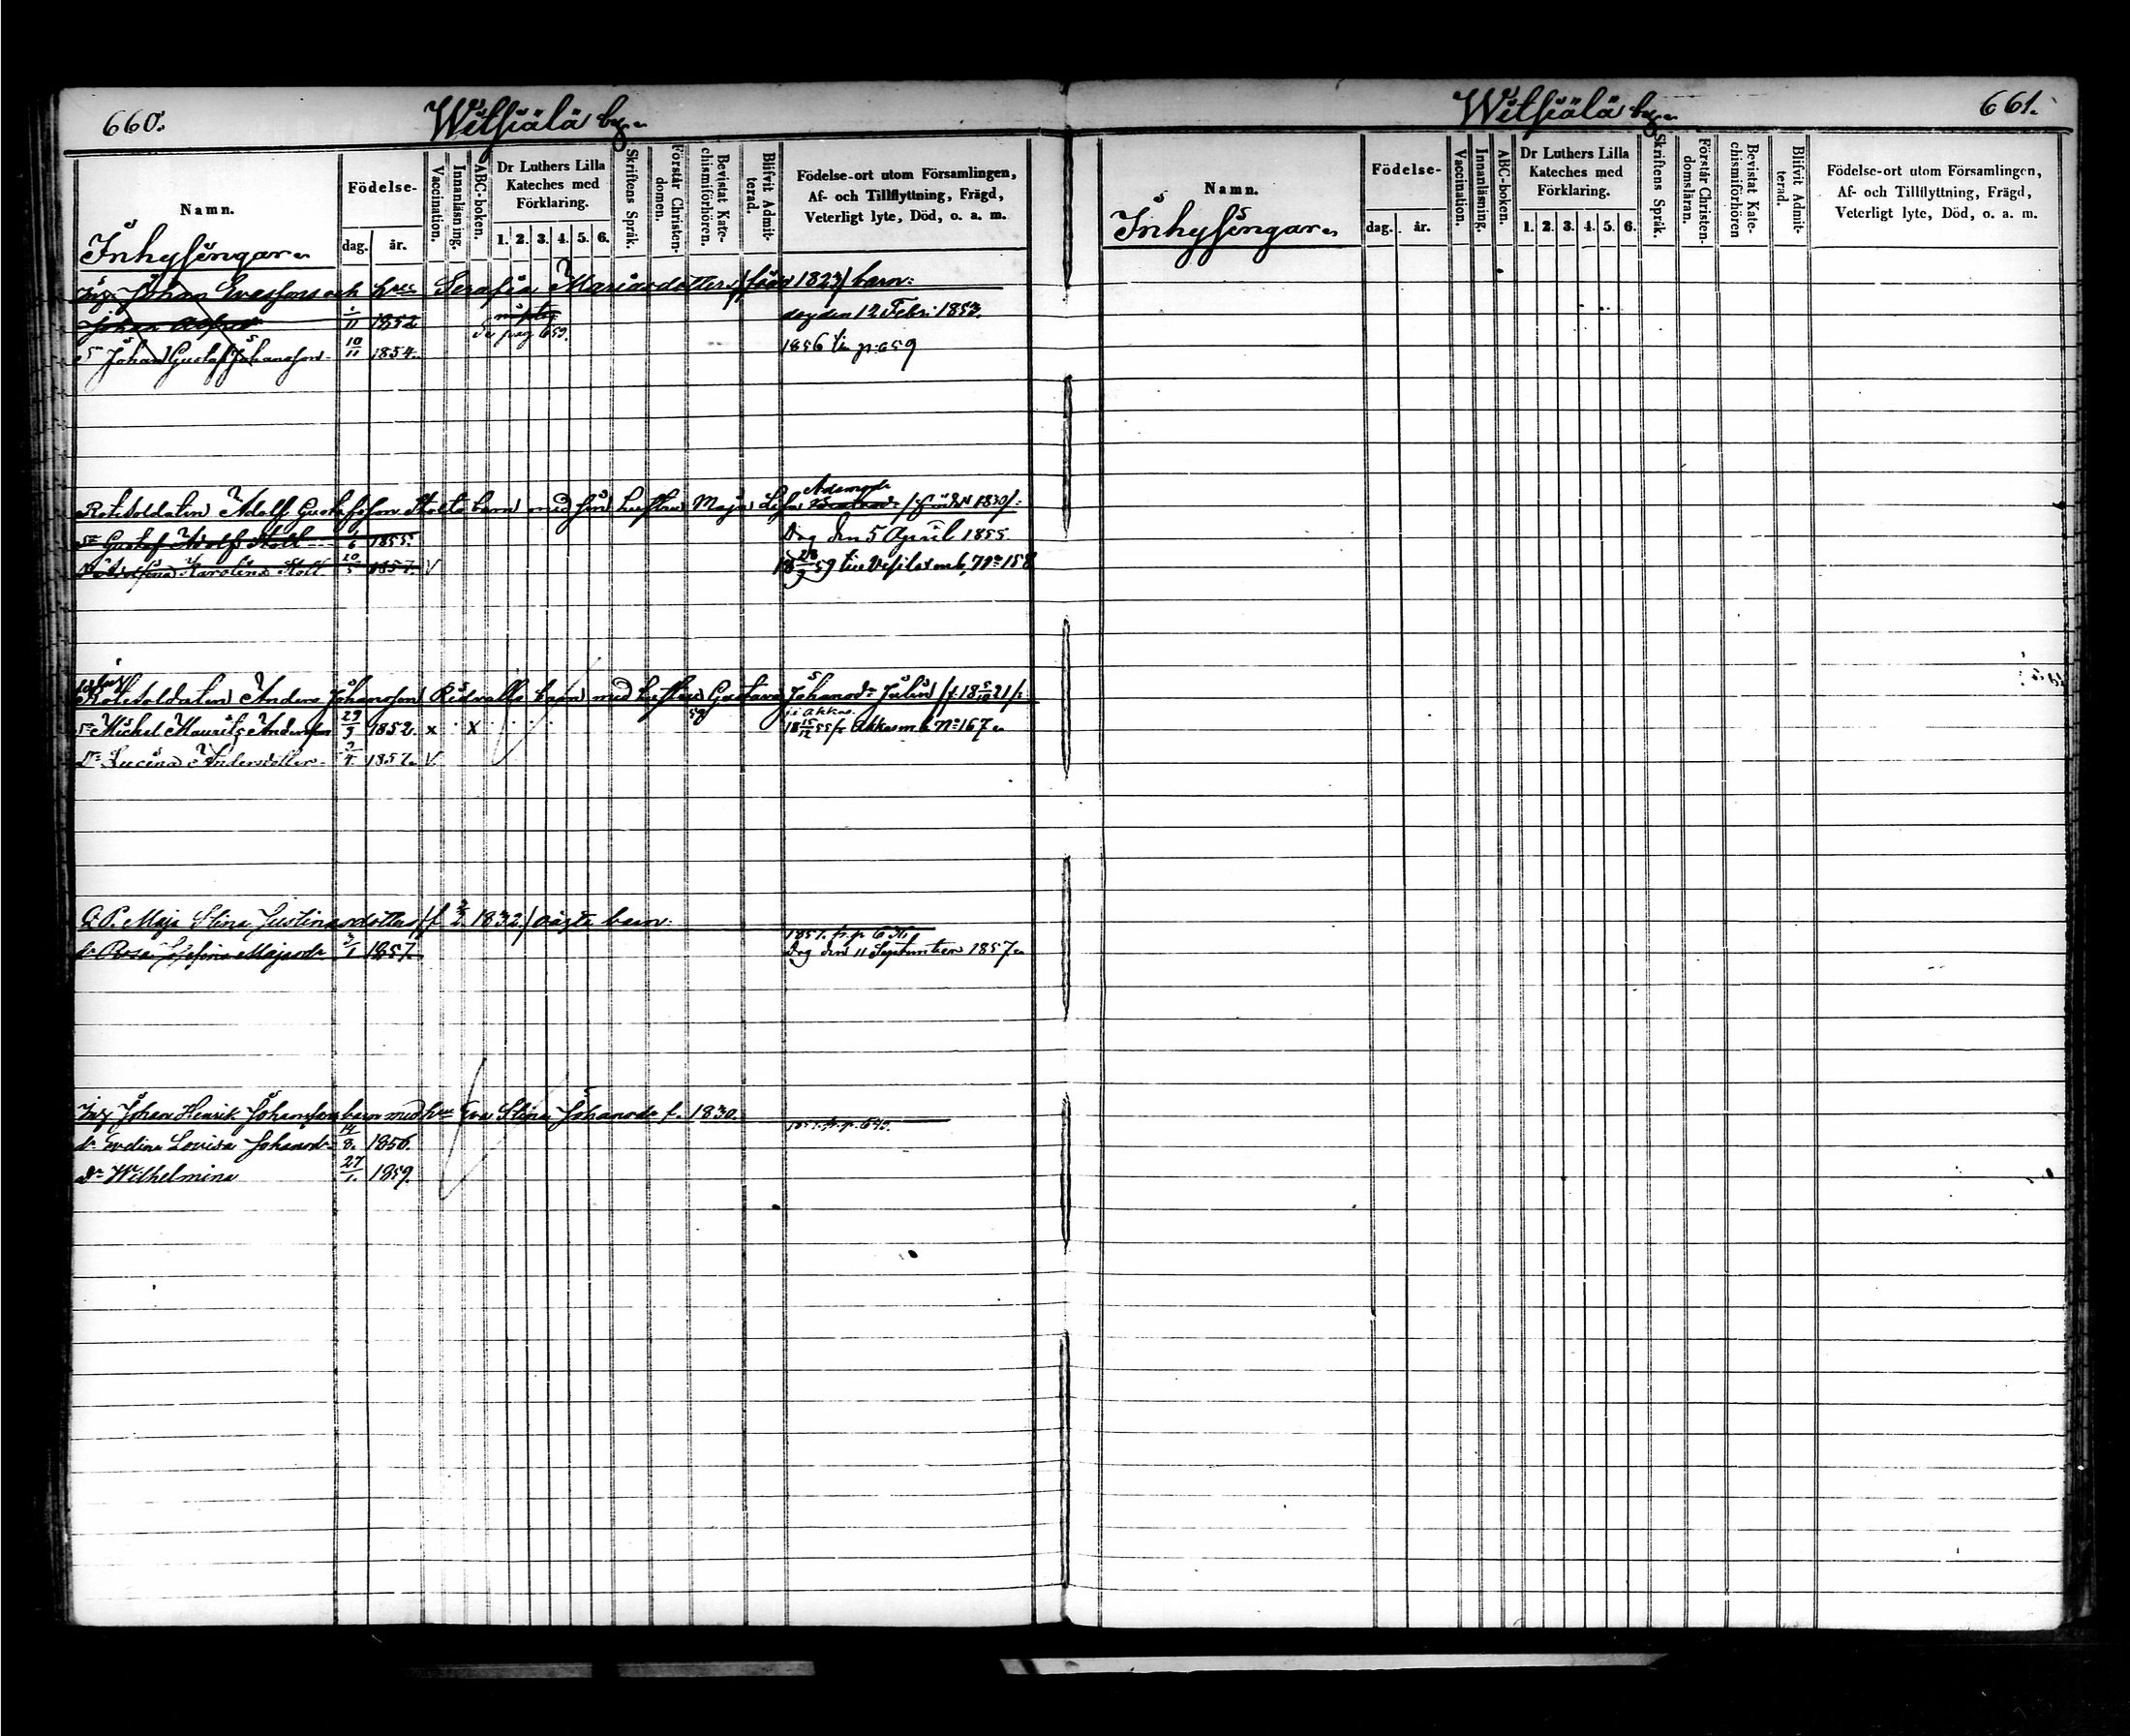 660.
Witsiälä by.
Namn.
Inhysingar.
Födelse-
dag.
år.
Vaccination.
Innanläsning.
ABC-boken.
Dr Luthers Lilla
Kateches med
Förklaring.
1. 2. 3. 4. 5. 6.
Skriftens Språk.
Förstår Christen-
domen.
Bevistat Kate-
chismiförhören.
Blifvit Admit-
terad.
Födelse-ort utom Församlingen,
Af- och Tillflyttning, Frägd,
Veterligt lyte, Död, o. a. m.
Johan Evasson och hus Serafia Mariasdotters /född 1823/ barn:
Johan 11 1852 dog den 12 Febr: 1853.
Se pag 659.
Sn Johan Gustaf Johansson 10/11 1854. 1856 till p. 659
Rotesoldaten Adolf Gustafsson Stolts barn med sin hustru Maja Lisa Adamsdr /född 1830/:
Sn Gustaf Adolf Stoll 1/6 1855. Dog den 5 April 1855.
Dr Karolina Stoll 5 1857. V 59 till m b, No 158
Rotesoldaten Anders Johansson Ridvalls barn med hustru Gustava Johansdr Julin /f. 18 21/:
Sn Michel Maurits Andersson 29/9 1852. x x 18 15/12 55 fr Akkas m b No 167.
Dr Lucina Andersdotter 1857. V.
Q. P. Maja Stina Justinasdotters /f 1832./ oägta barn:
dr Rosa Josefina Majasdr 1857. Dog den 11 September 1857.
Johan Henrik Johanssons barn med hus Eva Stina Johansdr f. 1830.
dr Evelina Lovisa Johansdr 14/8. 1856.
Dr Wilhelmina 27/1. 1859.
Witsiälä by.
661.
Namn.
Inhysingar.
Födelse-
dag.
år.
Vaccination.
Innanläsning.
ABC-boken.
Dr Luthers Lilla
Kateches med
Förklaring.
1. 2. 3. 4. 5. 6.
Skriftens Språk.
Förstår Christen-
domsläran.
Bevistat Kate-
chismiförhören
Blifvit Admit-
terad.
Födelse-ort utom Församlingen,
Af- och Tillflyttning, Frägd,
Veterligt lyte, Död, o. a. m.